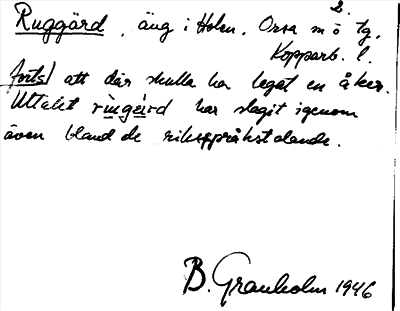 2.
Ruggärd, äng i Holen. Orsa sn o tg.
Kopparb. l.
forts) att där skulle ha legat en åker.
Uttalet rùngàrd har slagit igenom
även bland de riksspråkstalande.
B. Granholm 1946